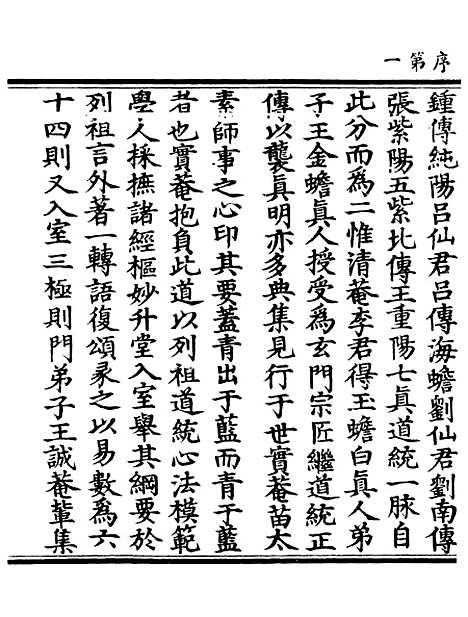 序第一
鍾傳純陽呂仙君呂傳海蟾劉仙君劉南傳
張紫陽五紫北傳王重陽七真道統一脉自
此分而為二惟清菴李君得玉蟾白真人弟
子王金蟾真人授受為玄門宗匠繼道統正
傳以襲真明亦多典集見行于世實菴苗太
素師事之心印其要蓋青出于藍而青于藍
者也實菴抱負此道以列祖道統心法模範
學人採摭諸經樞妙升堂入室舉其綱要於
列祖言外著一轉語復頌彖之以易數為六
十四則又入室三極則門弟子王誠菴輩集